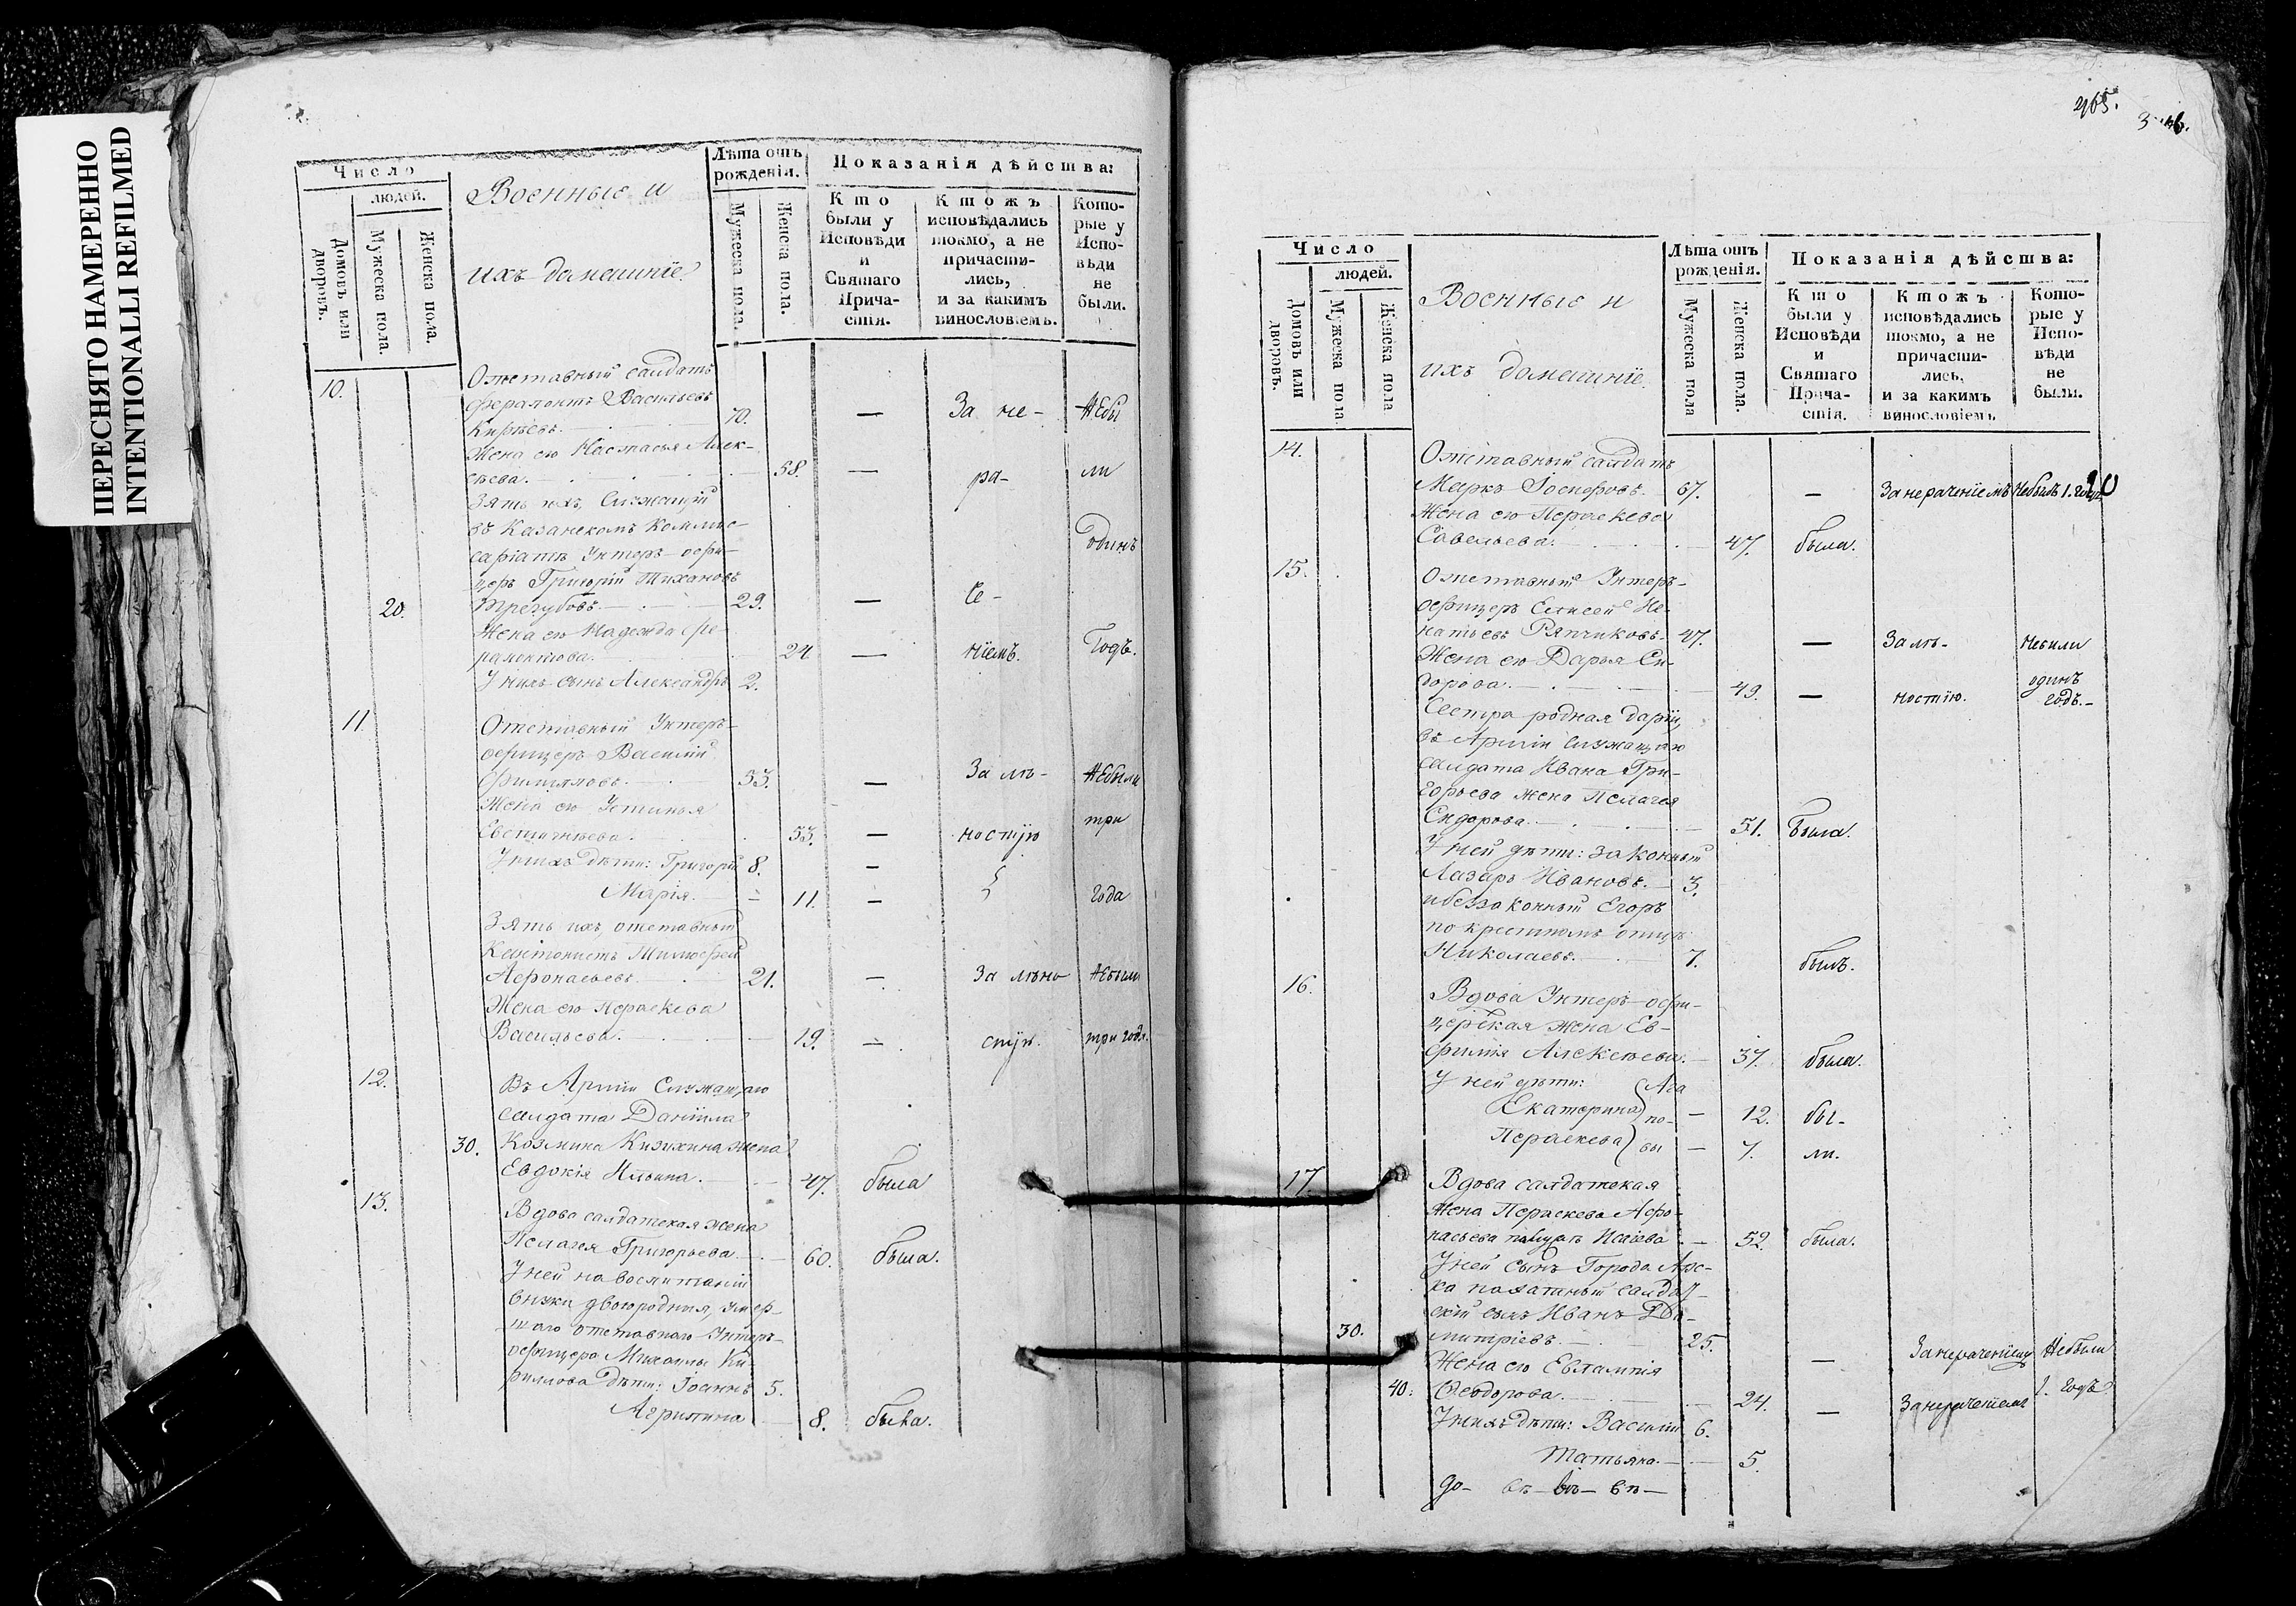 ПЕРЕСНЯТО НАМЕРЕННО
INTENTIONALLI REFILMED
Число
людей.
Домовъ или дворовъ.
Мужеска пола.
Женска пола.
Военные и
ихъ домашнїе
Лѣта отъ
рожденія.
Мужеска пола.
Женска пола.
Показанія дѣйства:
Кто
были у
Исповѣди
и
Святаго
Прича-
стія.
Ктожъ
исповѣдались
токмо, а не
причасти-
лись,
и за какимъ
винословіемъ.
Кото-
рые у
Испо-
вѣди
не
были.
10.
Отставный салдатъ
Ферапонтъ Васильевъ
Кирѣевъ. 70. — За не- Небы
Жена ею Настасья Алек-
сѣева. 58. — ра- ли
Зять ихъ, Служащїй
въ Казанскомъ Коммис-
сарїатѣ Унтеръ-офи- одинъ
церъ Григорїй Тихановъ
20. Трегубовъ. 29. — че-
Жена ею Надежда Фе-
рапонтова. 24 — нїемъ. Годъ.
У нихъ сынъ Александръ 2.
11. Отставный Унтеръ-
офицеръ Василїй
Филипповъ. 53. — За лѣ- Небыли
Жена ею Устинья
Евстигнѣева. 53. — ностїю три
У нихъ дѣти: Григорїй 8. —
Марїя. — 11. — года
Зять ихъ, отставный
Кантонистъ Тимофей
Афонасьевъ. 21. — За лѣно Небыли
Жена ею Пераскева
Васильева. — 19. — стїю. три года.
12. Въ Армїи Служащаго
салдата Данїила
30. Козмина Кизихина жена
Евдокїя Ильина. — 47. была
13. Вдова салдатская жена
Пелагея Григорьева. — 60. была.
У ней на воспитанїи
внуки двоюродныя, умер-
шаго отставнаго Унтеръ-
офицера Михаилы Ки-
риллова дѣти: Іоаннъ 5.
Агрипина — 8. была.
465.
Число
людей.
Домовъ или дворовъ.
Мужеска пола
Женска пола
Военные и
ихъ домашнїе.
Лѣта отъ
рожденія.
Мужеска пола
Женска пола.
Показанія дѣйства:
Кто
были у
Исповѣди
и
Святаго
Прича-
стія.
Ктожъ
исповѣдались
токмо, а не
причасти-
лись,
и за какимъ
винословіемъ
Кото-
рые у
Испо-
вѣди
не
были.
14. Отставный салдатъ
Маркъ Іосифовъ. 67. — За нераченїемъ Небылъ 1. годъ
Жена ею Пераскева
Савельева. — 47. была.
15. Отставный Унтеръ-
офицеръ Елисей Иг-
натьевъ Ряпчиковъ. 47. — За лѣ- небыли
Жена ею Дарья Си-
дорова. — 49. — ностїю. одинъ
годъ.-
Сестра родная Дарїи,
въ Армїи служащаго
салдата Ивана Гри-
горьева жена Пелагея
Сидорова. — 51. Была.
У ней дѣти: законный
Лазарь Ивановъ. 3.
и беззаконный Егоръ
по крестномъ отцѣ
Николаевъ. 7. былъ.
16. Вдова Унтеръ-офи-
церская жена Ев-
фимїя Алексѣева. — 37. была.
У ней дѣти:
Екатерина — 12. бы-
Пераскева — 7. ли.
17. Вдова салдатская
жена Пераскева Афо-
насьева — 52. была.
У ней сынъ Города Арс-
ка салдат-
скїй сынъ Иванъ Ди-
30. митрїевъ. 25. — За нераченїемъ Небыли
Жена ею Евлампїя
40. Ѳеодорова. — 24. — За нераченїемъ 1. годъ
У нихъ дѣти: Василїй 6.
Татьяна. — 5.